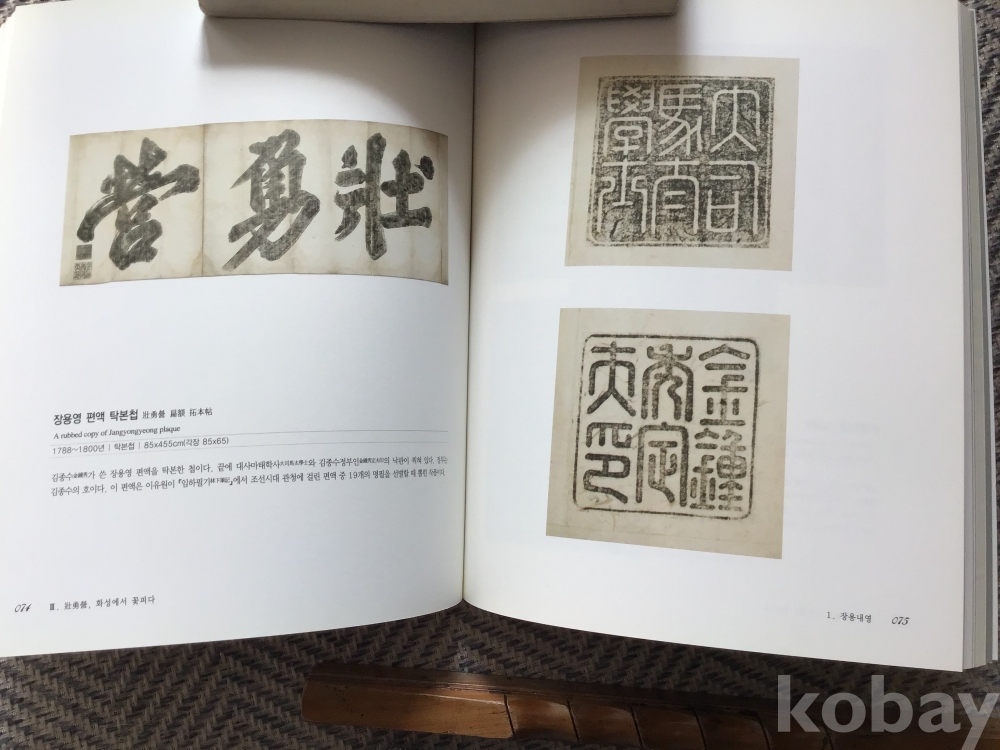 壯勇營
장용영 편액 탁본첩 壯勇營 扁額 拓本帖
A rubbed copy of Jangyongyeong plaque
1788~1800년 | 탁본첩 | 85x455cm(각장 85x65)
김종수金鍾秀가 쓴 장용영 편액을 탁본한 첩이다. 끝에 대사마태학사大司馬太學士와 김종수정부인金鍾秀定夫印의 낙관이 찍혀 있다. 정부는
김종수의 호이다. 이 편액은 이유원이 『임하필기林下筆記』에서 조선시대 관청에 걸린 편액 중 19개의 명필을 선별할 때 뽑힌 작품이다.
074 Ⅲ. 壯勇營, 화성에서 꽃피다
大司
馬太
學士
金鍾
秀定
夫印
1. 장용내영 075
kobay